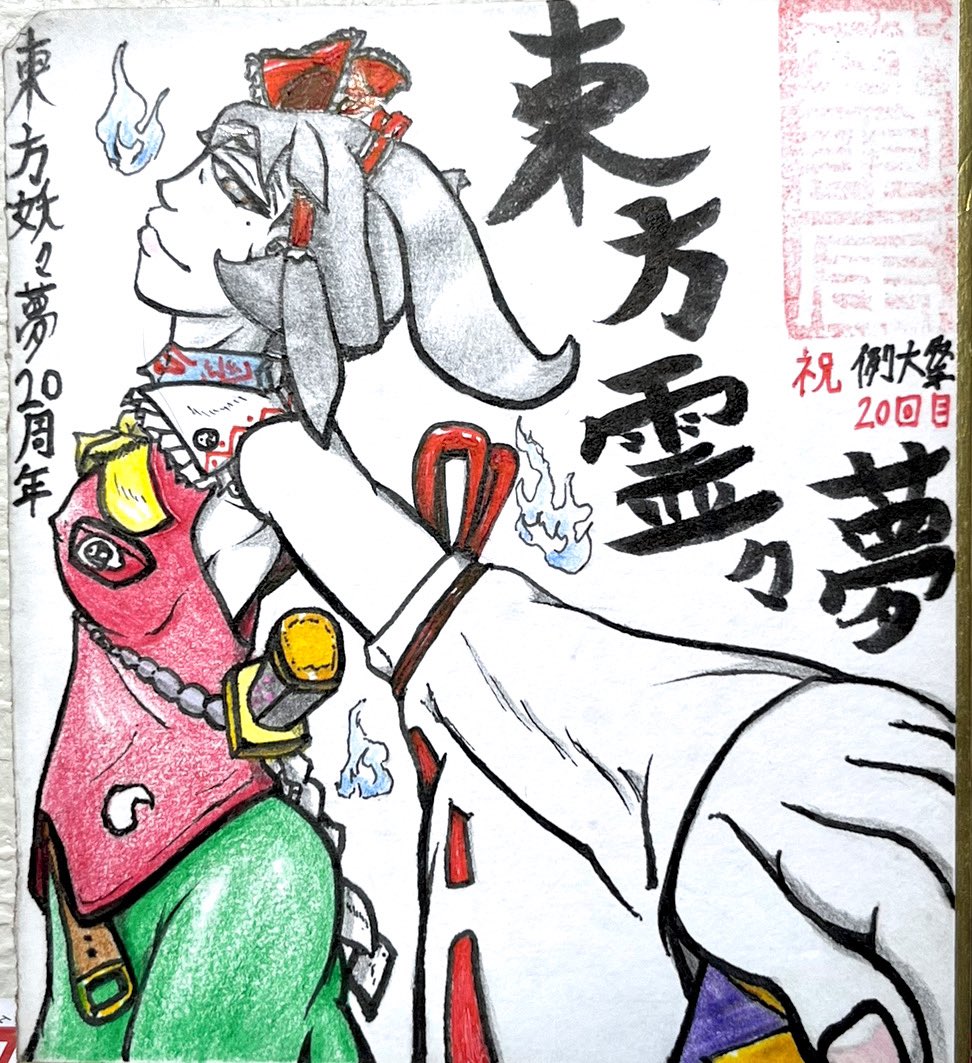 東方霊々夢
祝 例大祭
20回目
東方妖々夢20周年